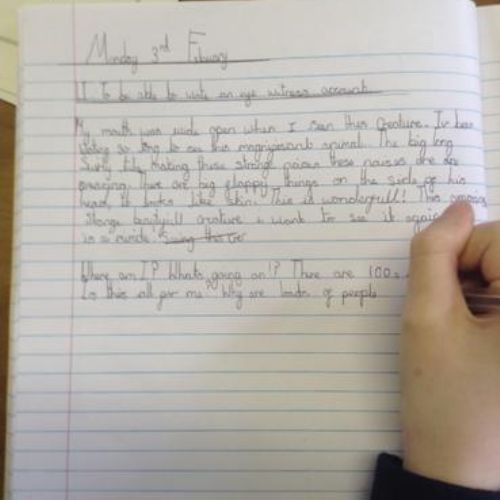 Monday 3rd February
I. To be able to write an eye witness account
My mouth was wide open when I seen this Creature. Iv been
so long to see this magnificant animal. The big long
making these strange noises these noises are
amazing. There are big flappy things on the side of his
head, it looks like skin. This is wonderfull! This amazing
strange beautifull creature i want to see it again
in a
Where am I? Whats going on!? There are 100s
Is this all for me? Why are loads of people